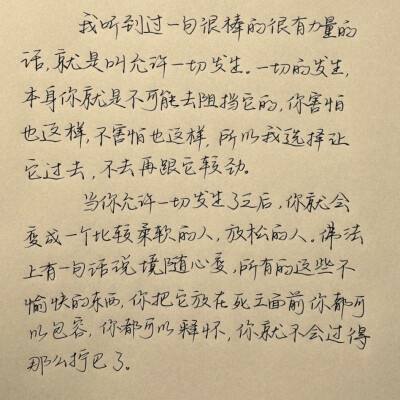 我听到过一句很棒的很有力量的
话,就是叫允许一切发生。一切的发生,
本身你就是不可能去阻挡它的,你害怕
也这样,不害怕也这样,所以我选择让
它过去,不去再跟它较劲。
当你允许一切发生了之后,你就会
变成一个比较柔软的人,放松的人。佛法
上有一句话说境随心变,所有的这些不
愉快的东西,你把它放在死亡面前你都可
以包容,你都可以释怀,你就不会过得
那么拧巴了。